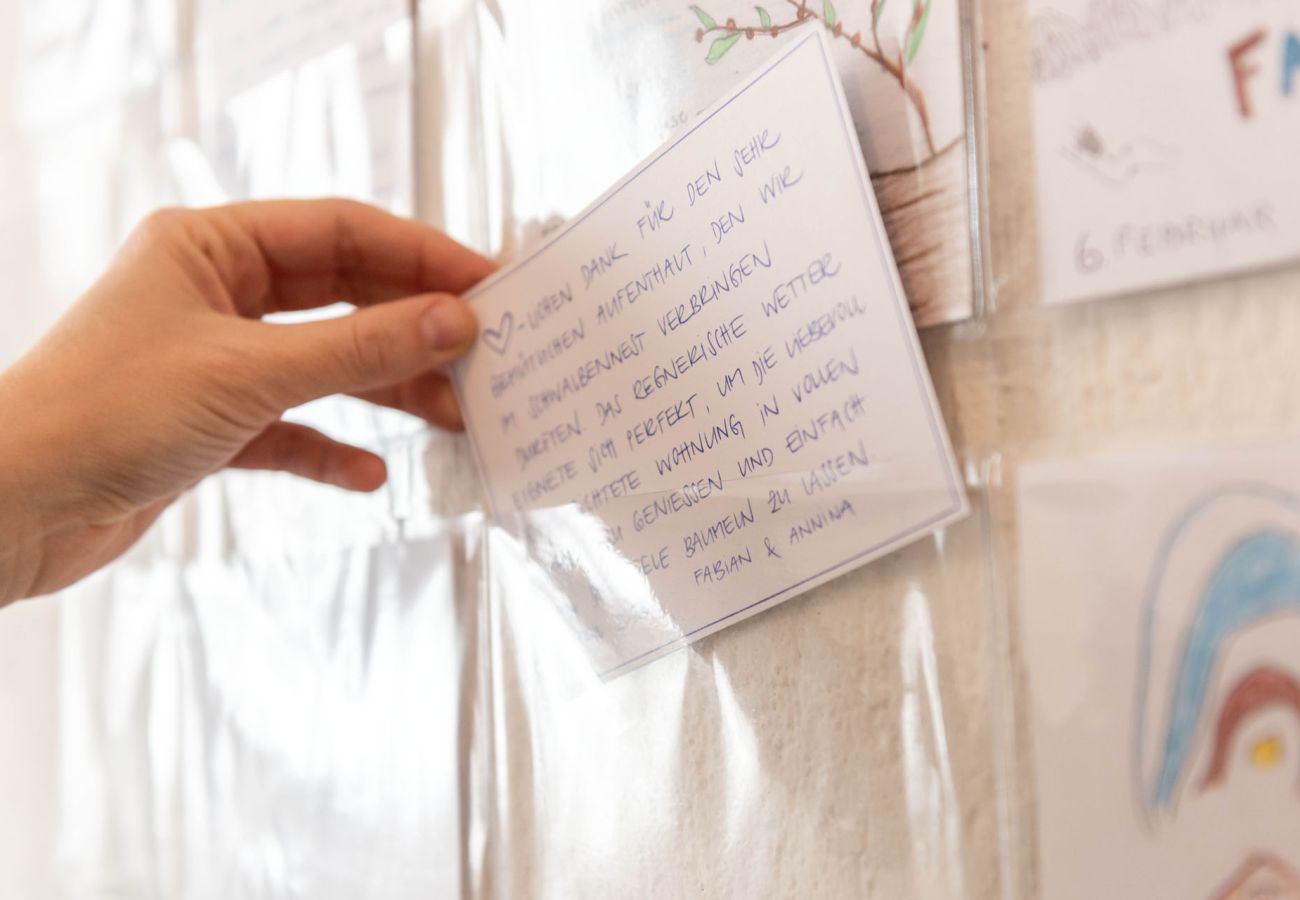 ♡-LICHEN DANK FÜR DEN SEHR
GEMÜTLICHEN AUFENTHALT, DEN WIR
IM SCHWALBENNEST VERBRINGEN
DURFTEN. DAS REGNERISCHE WETTER
EIGNETE SICH PERFEKT, UM DIE LIEBEVOLL
CHTETE WOHNUNG IN VOLLEN
ZU GENIESSEN UND EINFACH
ELE BAUMELN ZU LASSEN.
FABIAN & ANNINA
FA
6. FEBRUAR